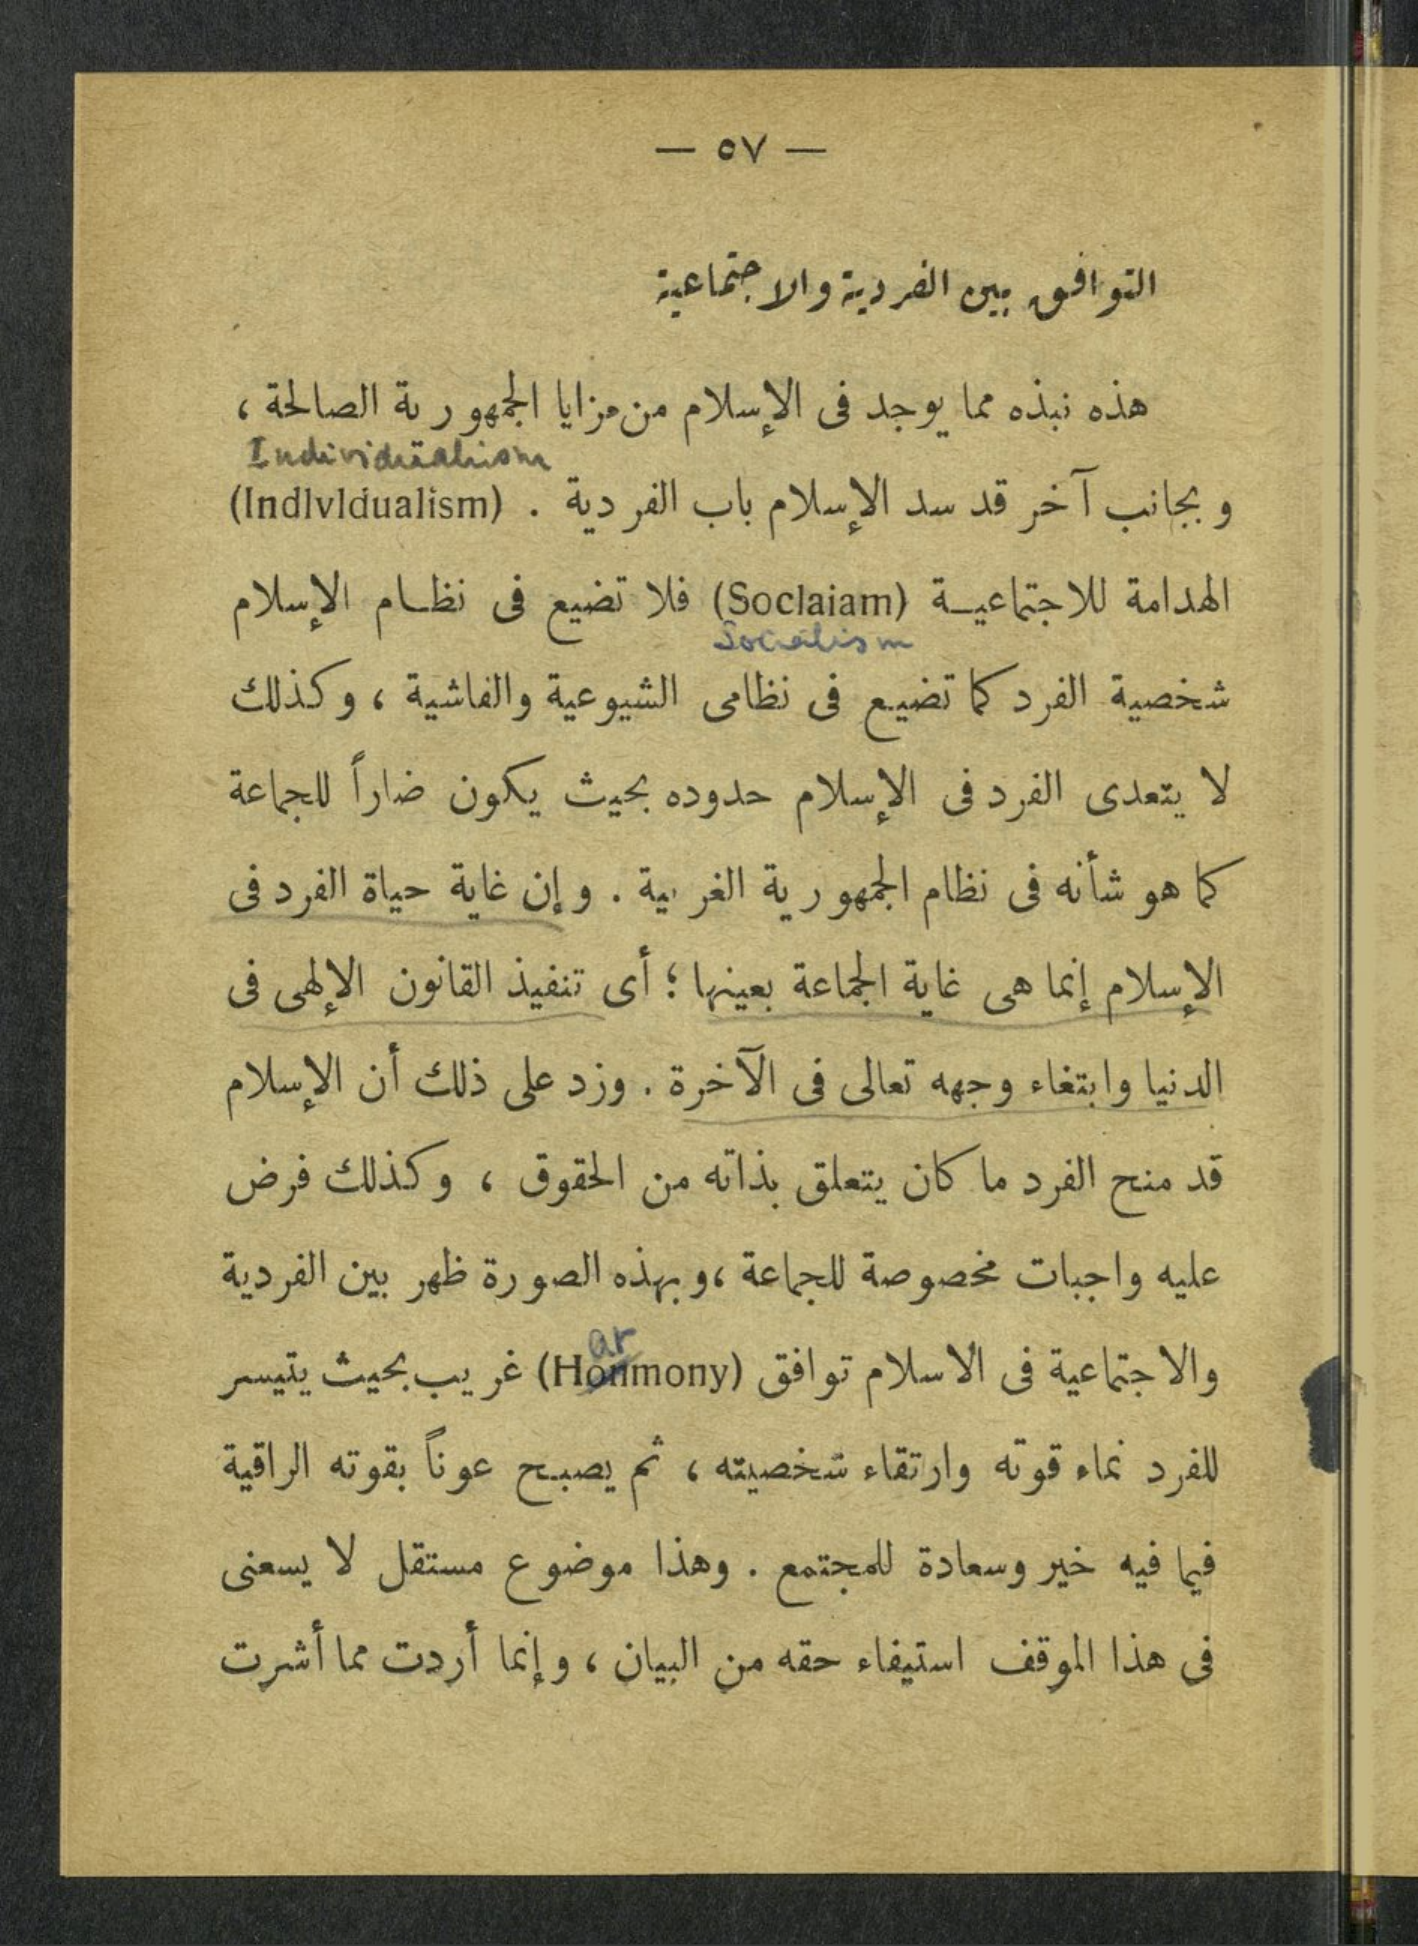 — ٥٧ —
التوافق بين الفردية والاجتماعية
هذه نبذه مما يوجد فى الإسلام من مزايا الجمهورية الصالحة ،
Individualism
وبجانب آخر قد سد الإسلام باب الفردية . (Indlvldualism)
الهدامة للاجتماعيـة (Soclaiam) فلا تضيع فى نظـام الإسلام
Socialism
شخصية الفرد كما تضيع فى نظامى الشيوعية والفاشية ، وكذلك
لا يتعدى الفرد فى الإسلام حدوده بحيث يكون ضاراً للجماعة
كما هو شأنه فى نظام الجمهورية الغربية . وإن غاية حياة الفرد فى
الإسلام إنما هى غاية الجماعة بعينها ؛ أى تنفيذ القانون الإلهى فى
الدنيا وابتغاء وجهه تعالى فى الآخرة . وزد على ذلك أن الإسلام
قد منح الفرد ما كان يتعلق بذاته من الحقوق ، وكذلك فرض
عليه واجبات مخصوصة للجماعة ، وبهذه الصورة ظهر بين الفردية
ar
والاجتماعية فى الاسلام توافق (Honmony) غريب بحيث يتيسر
للفرد نماء قوته وارتقاء شخصيته ، ثم يصبح عوناً بقوته الراقية
فيما فيه خير وسعادة للمجتمع . وهذا موضوع مستقل لا يسعنى
فى هذا الموقف استيفاء حقه من البيان ، وإنما أردت مما أشرت